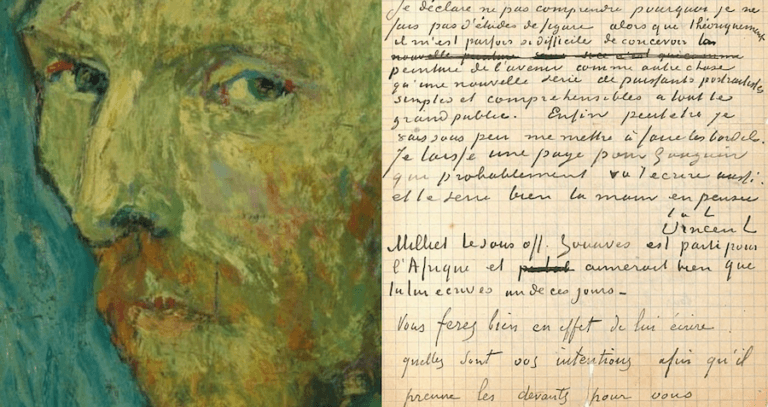 Je déclare ne pas comprendre pourquoi je ne
fais pas d'études de figure alors que théoriquement
il m'est parfois si difficile de concevoir la
nouvelle peinture comme
peinture de l'avenir comme autre chose
qu'une nouvelle serie de puissants portraitistes
simples et comprehensibles a tout le
grand public. Enfin peut etre je
vais sous peu me mettre à faire les bordels.
Je laisse une page pour Gauguin
qui probablement va t'ecrire aussi.
et te serre bien la main en pensée
t à t
Vincent
Milliet le sous off. Zouaves est parti pour
l'Afrique et aimerait bien que
tu lui ecrives un de ces jours –
Vous ferez bien en effet de lui écrire
quelles sont vos intentions afin qu'il
prenne les devants pour vous